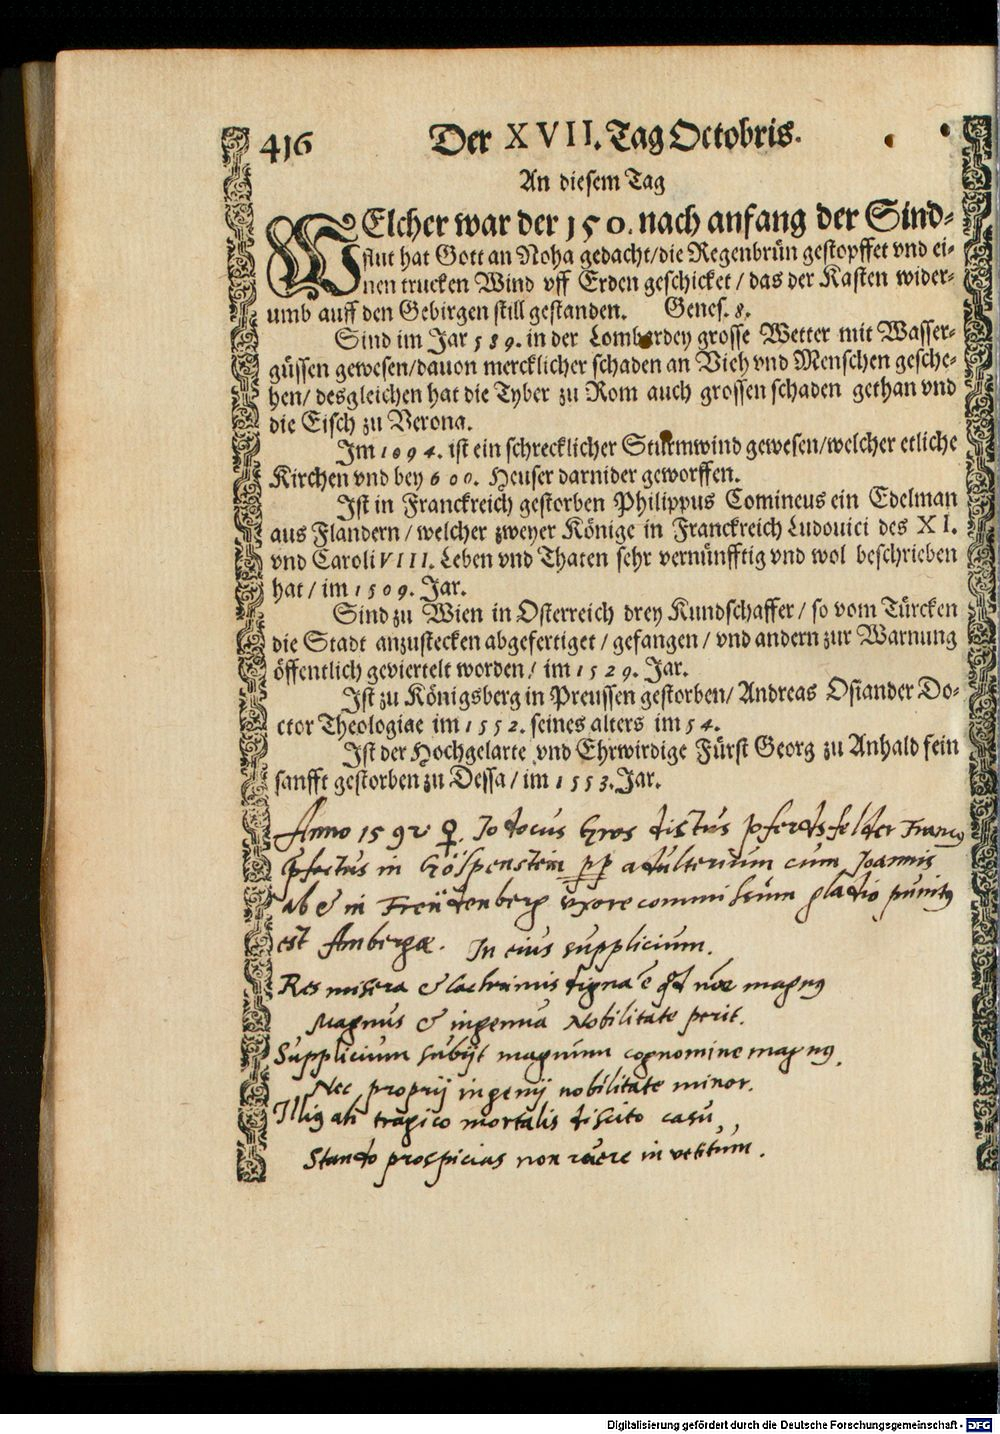 416 Der XVII. Tag Octobris.
An diesem Tag
WElcher war der 150. nach anfang der Sind-
flut hat Gott an Noha gedacht/die Regenbrün gestopffet vnd ei-
nen trucken Wind vff Erden geschicket / das der Kasten wider-
umb auff den Gebirgen still gestanden. Genes. 8.
Sind im Jar 589. in der Lombardey grosse Wetter mit Wasser-
güssen gewesen/dauon mercklicher schaden an Vieh vnd Menschen gesche-
hen/ desgleichen hat die Tyber zu Rom auch grossen schaden gethan vnd
die Eisch zu Verona.
Im 1094. ist ein schrecklicher Sturmwind gewesen/welcher etliche
Kirchen vnd bey 600. Heuser darnider geworffen.
Ist in Franckreich gestorben Philippus Comineus ein Edelman
aus Flandern / welcher zweyer Könige in Franckreich Ludouici des XI.
vnd Caroli VIII. Leben vnd Thaten sehr vernünfftig vnd wol beschrieben
hat / im 1509. Jar.
Sind zu Wien in Osterreich drey Kundschaffer / so vom Türcken
die Stadt anzustecken abgefertiget / gefangen / vnd andern zur Warnung
öffentlich geviertelt worden / im 1529. Jar.
Ist zu Königsberg in Preussen gestorben/ Andreas Osiander Do-
ctor Theologiae im 1552. seines alters im 54.
Ist der Hochgelarte vnd Ehrwirdige Fürst Georg zu Anhald fein
sanfft gestorben zu Dessa / im 1553. Jar.
Anno 1592 ♀. Jodocus Gros dictus Pferdsfelder Francus
in Göspenstein pp adulterium cum Joannis
ab & in Freudenberg vxore commissum gladio punitus
est Ambergæ. In eius supplicium.
Res misera & lachrimis digna magnus
Magnus & ingenua Nobilitate perit.
Supplicium subijt magnum cognomine magnus,
Nec proprij ingenij nobilitate minor.
Illius ah tragico mortalis discito casu,
Stando prospicias non ruere in vetitum.
Digitalisierung gefördert durch die Deutsche Forschungsgemeinschaft - DFG